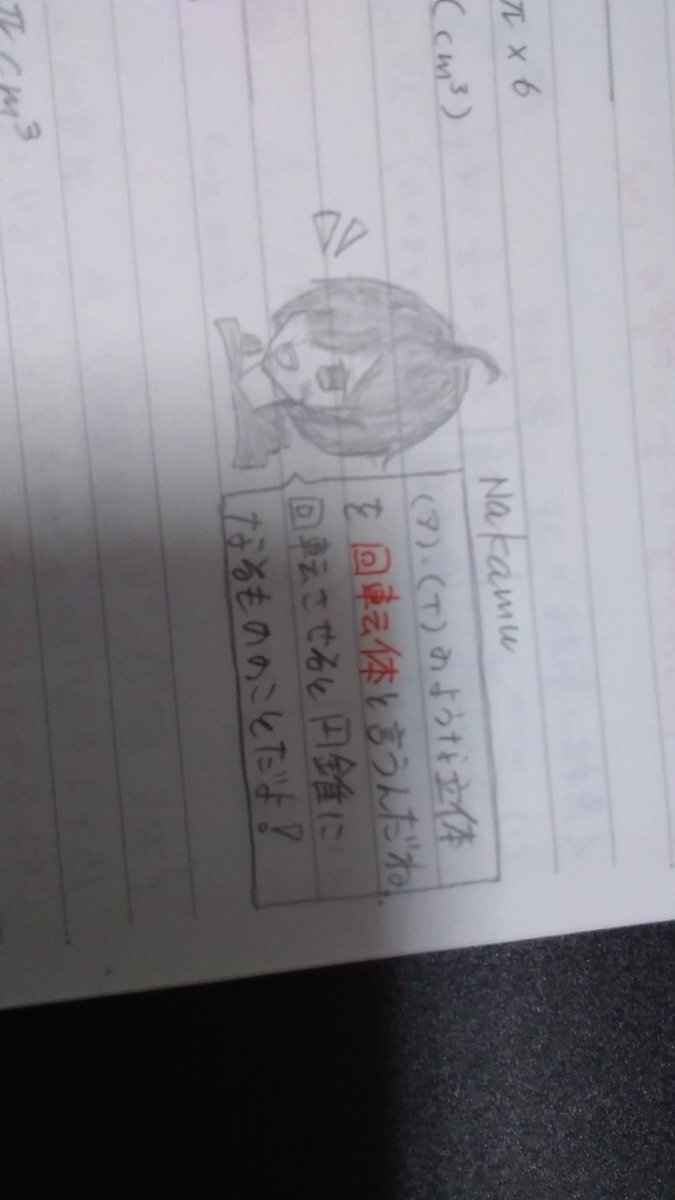 π×6
(cm³)
πcm³
Nakamu
(ア)、(イ)のような立体
を回転体と言うんだね。
回転させると円錐に
なるもののことだよ!